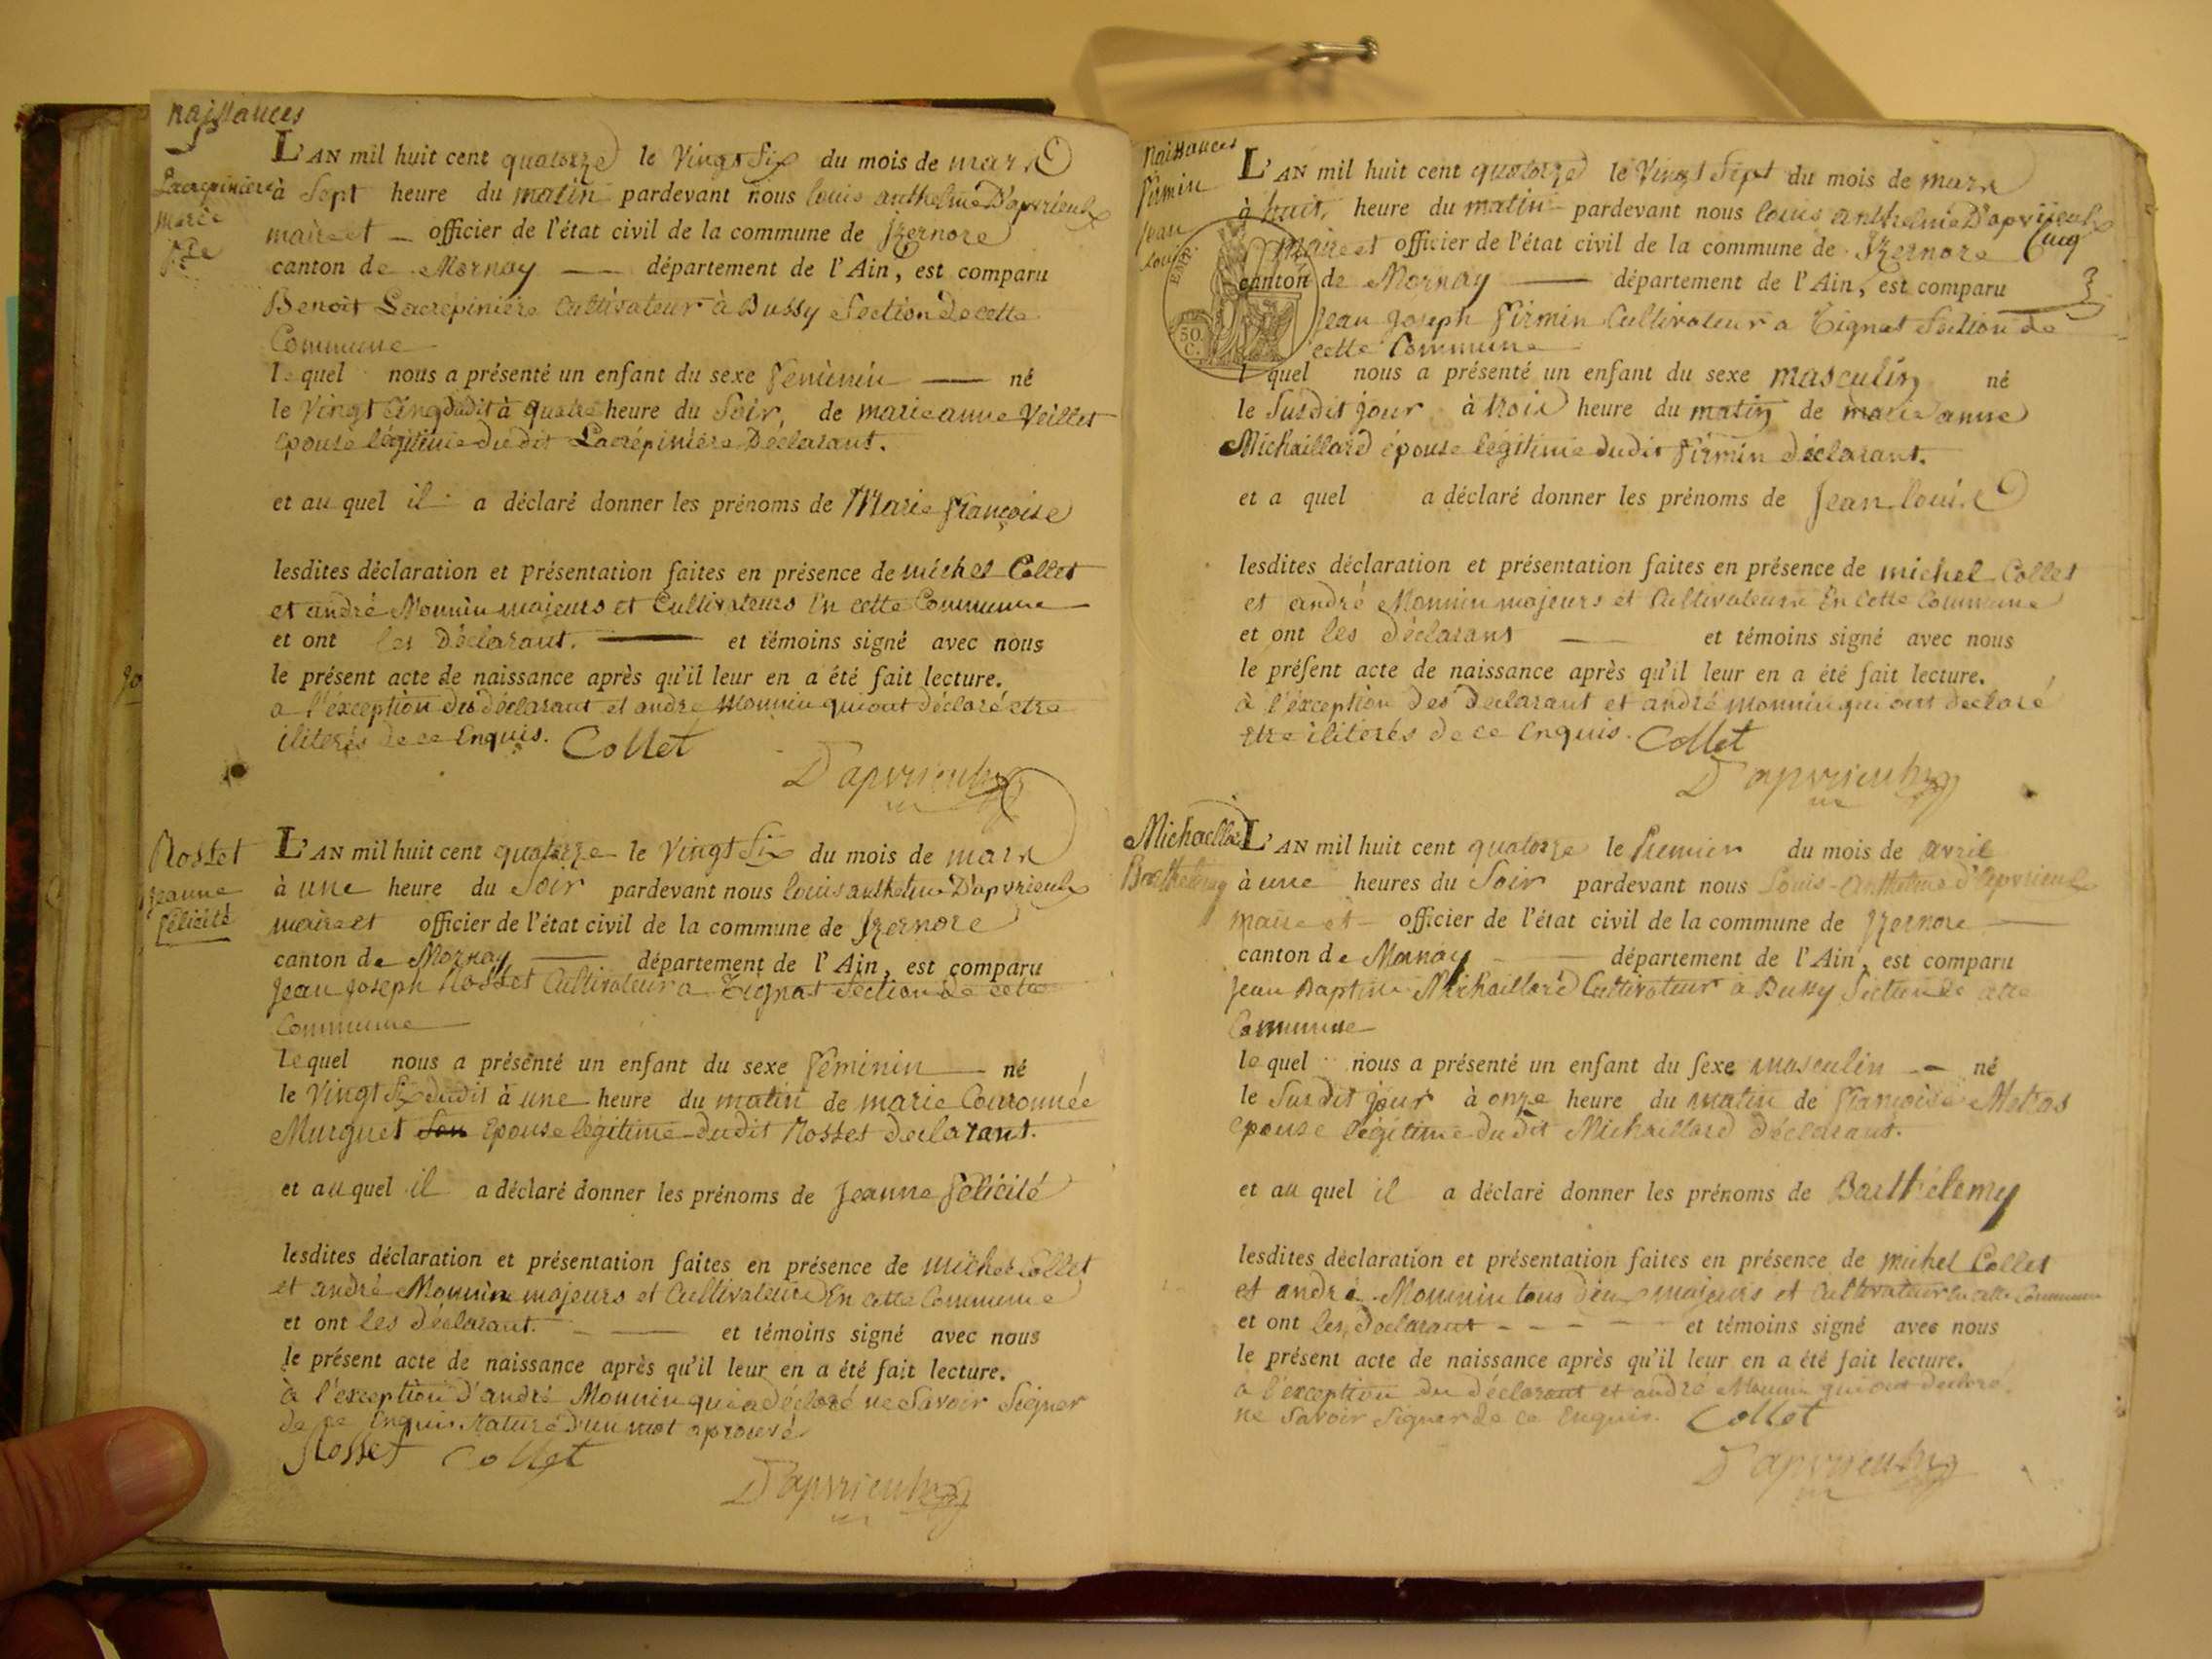 naissances
Lacrepiniere
marie
f.se
L'AN mil huit cent quatorze le Vingt Six du mois de mars
à Sept heure du matin pardevant nous louis anthelme D'apvrieulx
maire et officier de l'état civil de la commune de Izernore
canton de Mornay département de l'Ain, est comparu
Benoit Lacrépiniére Cultivateur à Bussy Section de cette
Commune
le quel nous a présenté un enfant du sexe feminin né
le Vingt Cinq dudit à quatre heure du Soir, de marie anne Veillet
épouse légitime du dit Lacrépiniére Déclarant.
et au quel il a déclaré donner les prénoms de Marie françoise
lesdites déclaration et présentation faites en présence de michel Collet
et andré Monnin majeurs et Cultivateurs En cette Commune
et ont les Déclarant. et témoins signé avec nous
le présent acte de naissance après qu'il leur en a été fait lecture.
a l'éxception des déclarant et andre Monnin qui ont déclaré etre
iliterés de ce Enquis. Collet
D'apvrieulx
Rosset
jeanne
félicité
L'AN mil huit cent quatorze le Vingt Six du mois de mars
à une heure du Soir pardevant nous louis anthelme D'apvrieulx
maire et officier de l'état civil de la commune de Izernore
canton de Mornay département de l'Ain, est comparu
Jean joseph Rosset Cultivateur a Tignat Section de cette
Commune
le quel nous a présenté un enfant du sexe féminin né
le Vingt Six dudit à une heure du matin de marie Couronnée
Murguet Son Epouse légitime du dit Rosset declarant.
et au quel il a déclaré donner les prénoms de Jeanne félicité
lesdites déclaration et présentation faites en présence de michel Collet
et andré Monnin majeurs et Cultivateurs En cette Commune
et ont les déclarant. et témoins signé avec nous
le présent acte de naissance après qu'il leur en a été fait lecture.
à l'exception d'andré Monnin qui a déclaré ne Savoir Signer
de ce Enquis Rature d'un mot aprouvé
Rosset Collet
D'apvrieulx
Naissances
firmin
jean
louis
50
C.
L'AN mil huit cent quatorze le Vingt Sept du mois de mars
à huit heure du matin pardevant nous louis anthelme D'apvrieulx
Maire et officier de l'état civil de la commune de Izernore Cinq
canton de Mornay département de l'Ain, est comparu
Jean joseph firmin Cultivateur a Tignat Section de
cette Commune
l quel nous a présenté un enfant du sexe masculin né
le Susdit jour à trois heure du matin de marie anne
Michaillard épouse légitime dudit firmin déclarant.
et a quel a déclaré donner les prénoms de Jean louis
lesdites déclaration et présentation faites en présence de michel Collet
et andré Monnin majeurs et Cultivateurs En cette Commune
et ont les déclarant et témoins signé avec nous
le présent acte de naissance après qu'il leur en a été fait lecture.
à l'éxception des declarant et andré monnin qui ont declaré
etre iliterés de ce Enquis. Collet
D'apvrieulx
Michaellard
Barthelemy
L'AN mil huit cent quatorze le Premier du mois de avril
à une heures du Soir pardevant nous Louis-Anthelme d'apvrieulx
Maire et officier de l'état civil de la commune de Izernore
canton de Mornay département de l'Ain, est comparu
Jean Baptiste Michaillard Cultivateur a Bussy Section de cette
Commune
le quel nous a présenté un enfant du sexe masculin né
le Susdit jour à onze heure du matin de françoise Metras
épouse légitime du dit Michaillard Déclarant.
et au quel il a déclaré donner les prénoms de Barthélemy
lesdites déclaration et présentation faites en présence de michel Collet
et andré Monnin tous deux majeurs et Cultivateur En cette Commune
et ont les Declarant et témoins signé avec nous
le présent acte de naissance après qu'il leur en a été fait lecture.
a l'exception du déclarant et andré Monnin qui ont declaré
ne Savoir Signer de ce Enquis. Collet
D'apvrieulx